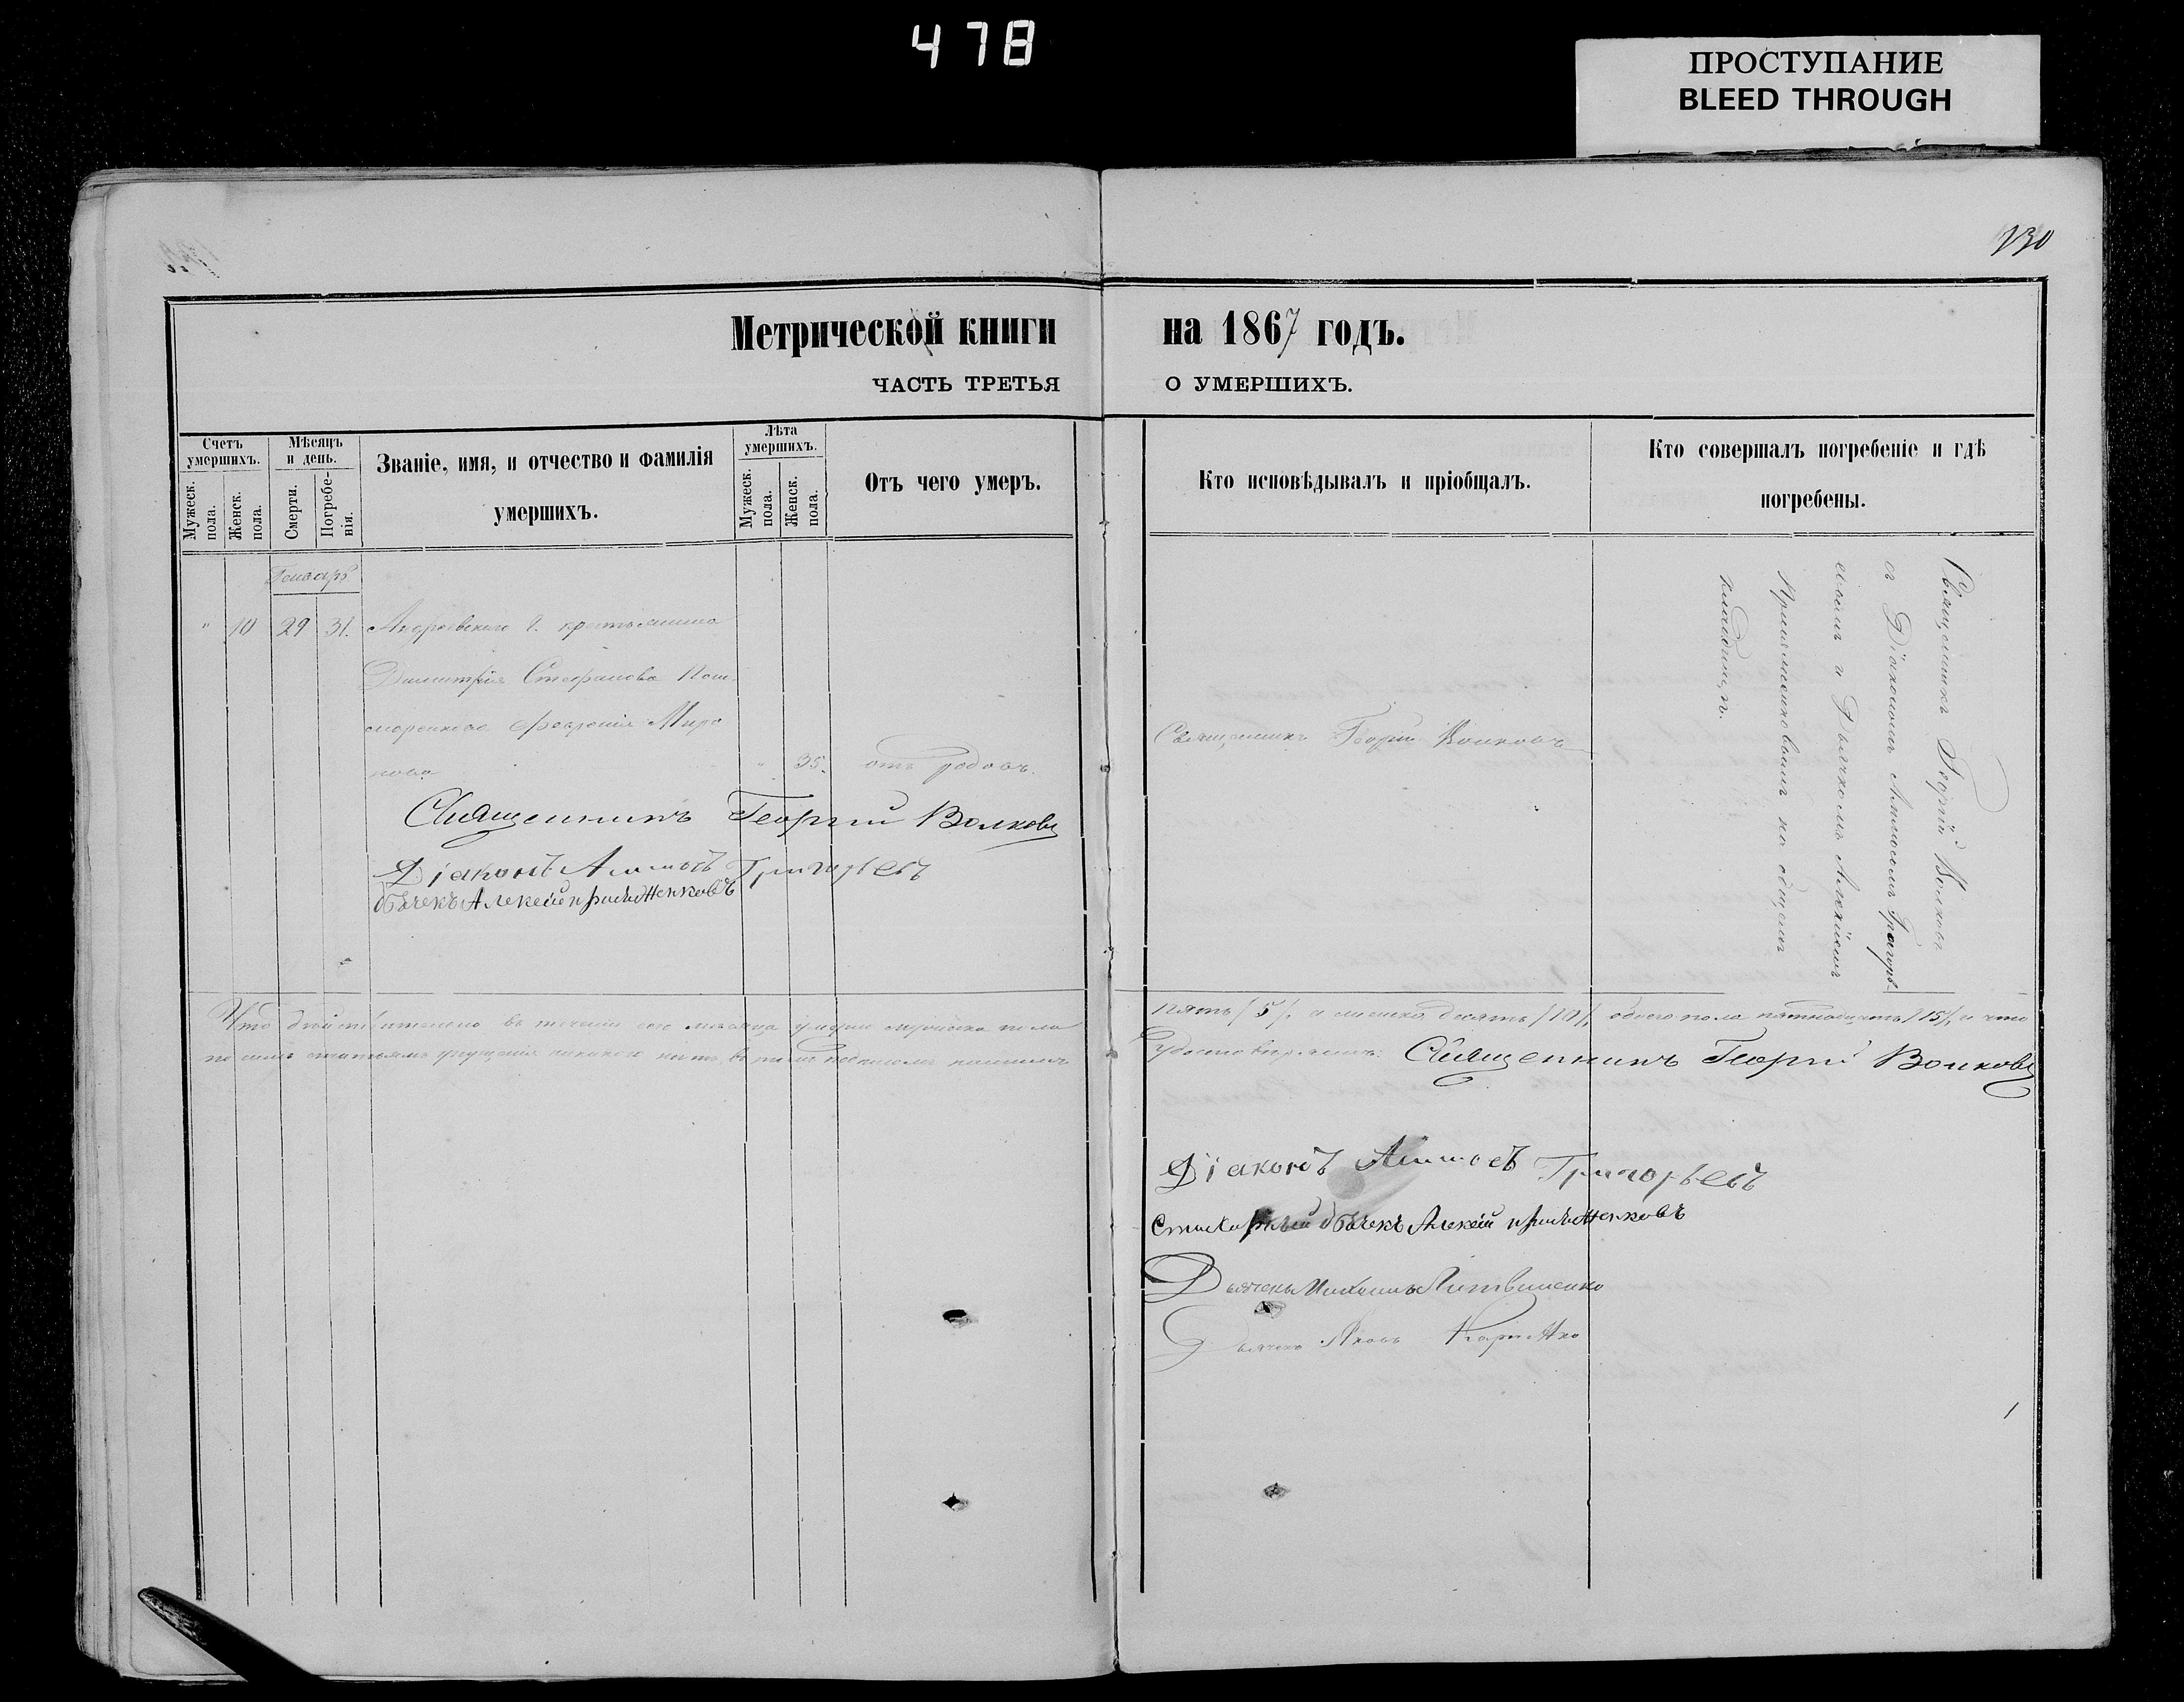 478
ПРОСТУПАНИЕ
BLEED THROUGH
130
Метрической книги на 1867 годъ.
ЧАСТЬ ТРЕТЬЯ О УМЕРШИХЪ.
Счетъ умершихъ.
Мужеск. пола.
Женск. пола.
Мѣсяцъ и день.
Смерти.
Погребе-нія.
Званіе, имя, и отчество и фамилія
умершихъ.
Лѣта умершихъ.
Мужеск. пола.
Женск. пола.
Отъ чего умеръ.
Кто исповѣдывалъ и пріобщалъ.
Кто совершалъ погребеніе и гдѣ
погребены.
Генварь
" 10 29 31. крестьянина
Димитрія Стефанова
Миро
нова " 35. отъ родовъ.
Священникъ Георгій Волковъ
Священникъ Георгій Волковъ
съ Діакономъ Григорь-
евымъ и Дьячкомъ Алексѣемъ
на общемъ
кладбищѣ.
Священникъ Георгій Волковъ
Діаконъ Григорьевъ
Дьячекъ Алексѣй
Что дѣйствительно въ теченіи сего мѣсяца умерло мужеска пола
пять /5/, а женска десять /10/, обоего пола пятнадцать /15/, и что
по симъ статьямъ упущенія никакого нѣтъ, въ томъ подписомъ нашимъ
удостовѣряемъ: Священникъ Георгій Волковъ
Діаконъ Григорьевъ
Стихарный дьячекъ Алексѣй
Дьячекъ Литвиненко
Дьячекъ Яковъ